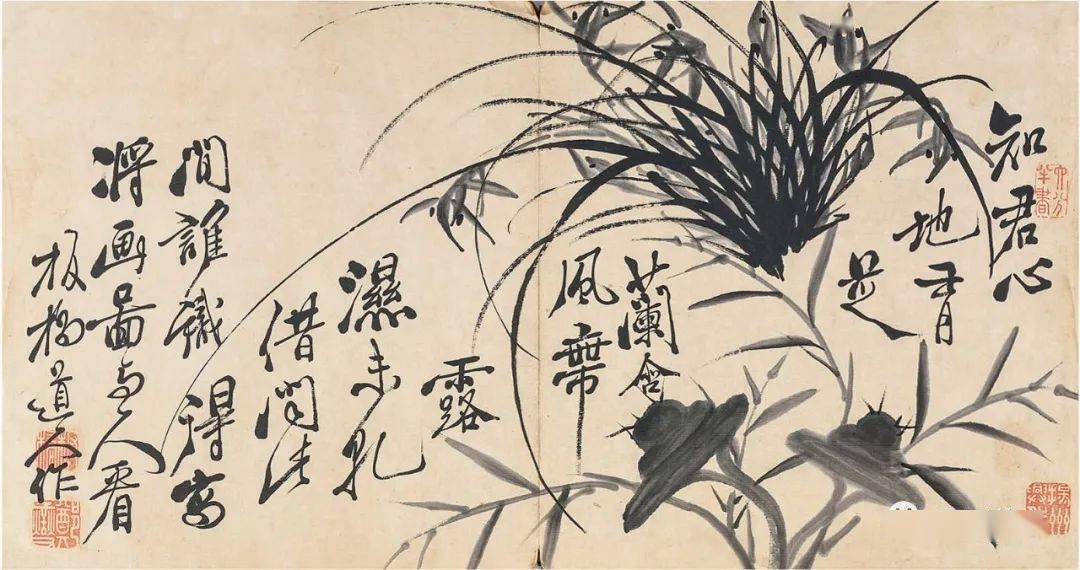 知君心
地
蘭含
風帶
露
濕未乳
借問此
間誰識得寫
將画啚與人看
板橋道人作
六分半書